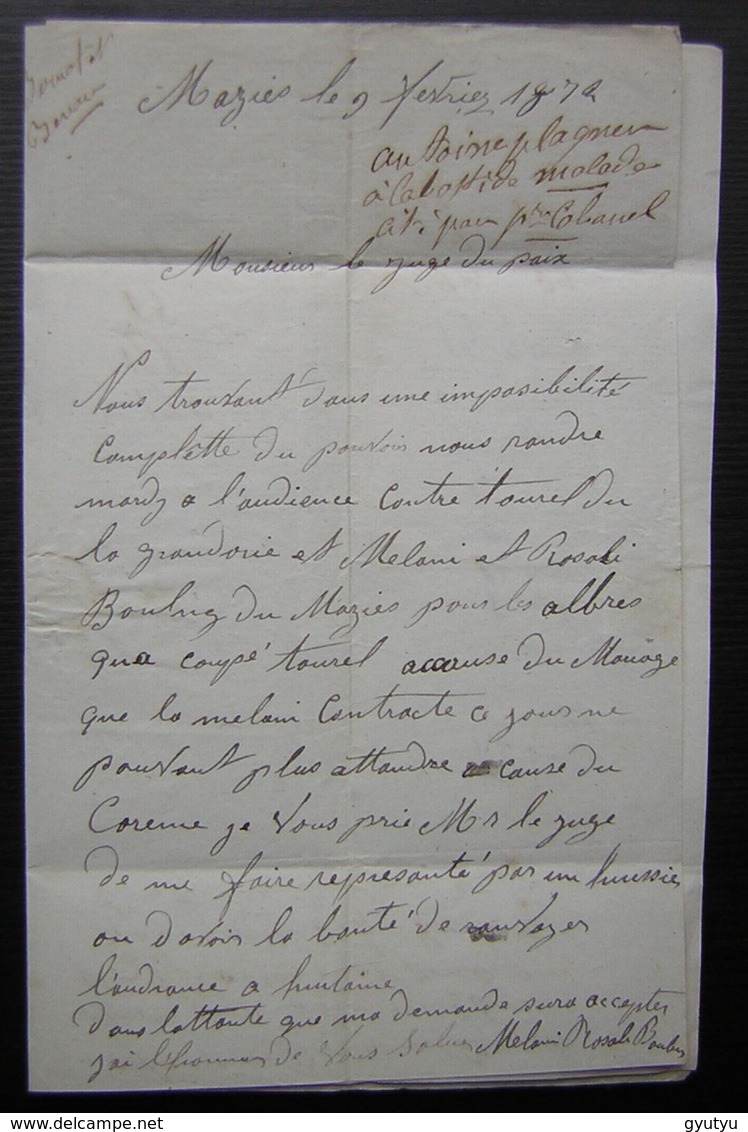 Mazies le 9 fevrier 1872
antoine plagnes
à labastide malade
cité par pre Cabanel
Monsieur le juge du paix
Nous trouvant dans une imposibilité
complette du pouvoir nous randre
mardy a l'audience contre tourel du
la grandorie et Melani et Rosali
du Mazies pour les albres
qua coupé tourel accause du Mariage
que la melani contracte ce jour ne
pouvant plus attandre a cause du
Coreme je vous prie Mr le juge
de me faire represanté par un hussier
ou davoir la bonté de ranvoyer
l'audiance a huitaine
Dans lattante que ma demande sera accepter
jai l'honneur de vous saluer Melani Rosali
gyutyu